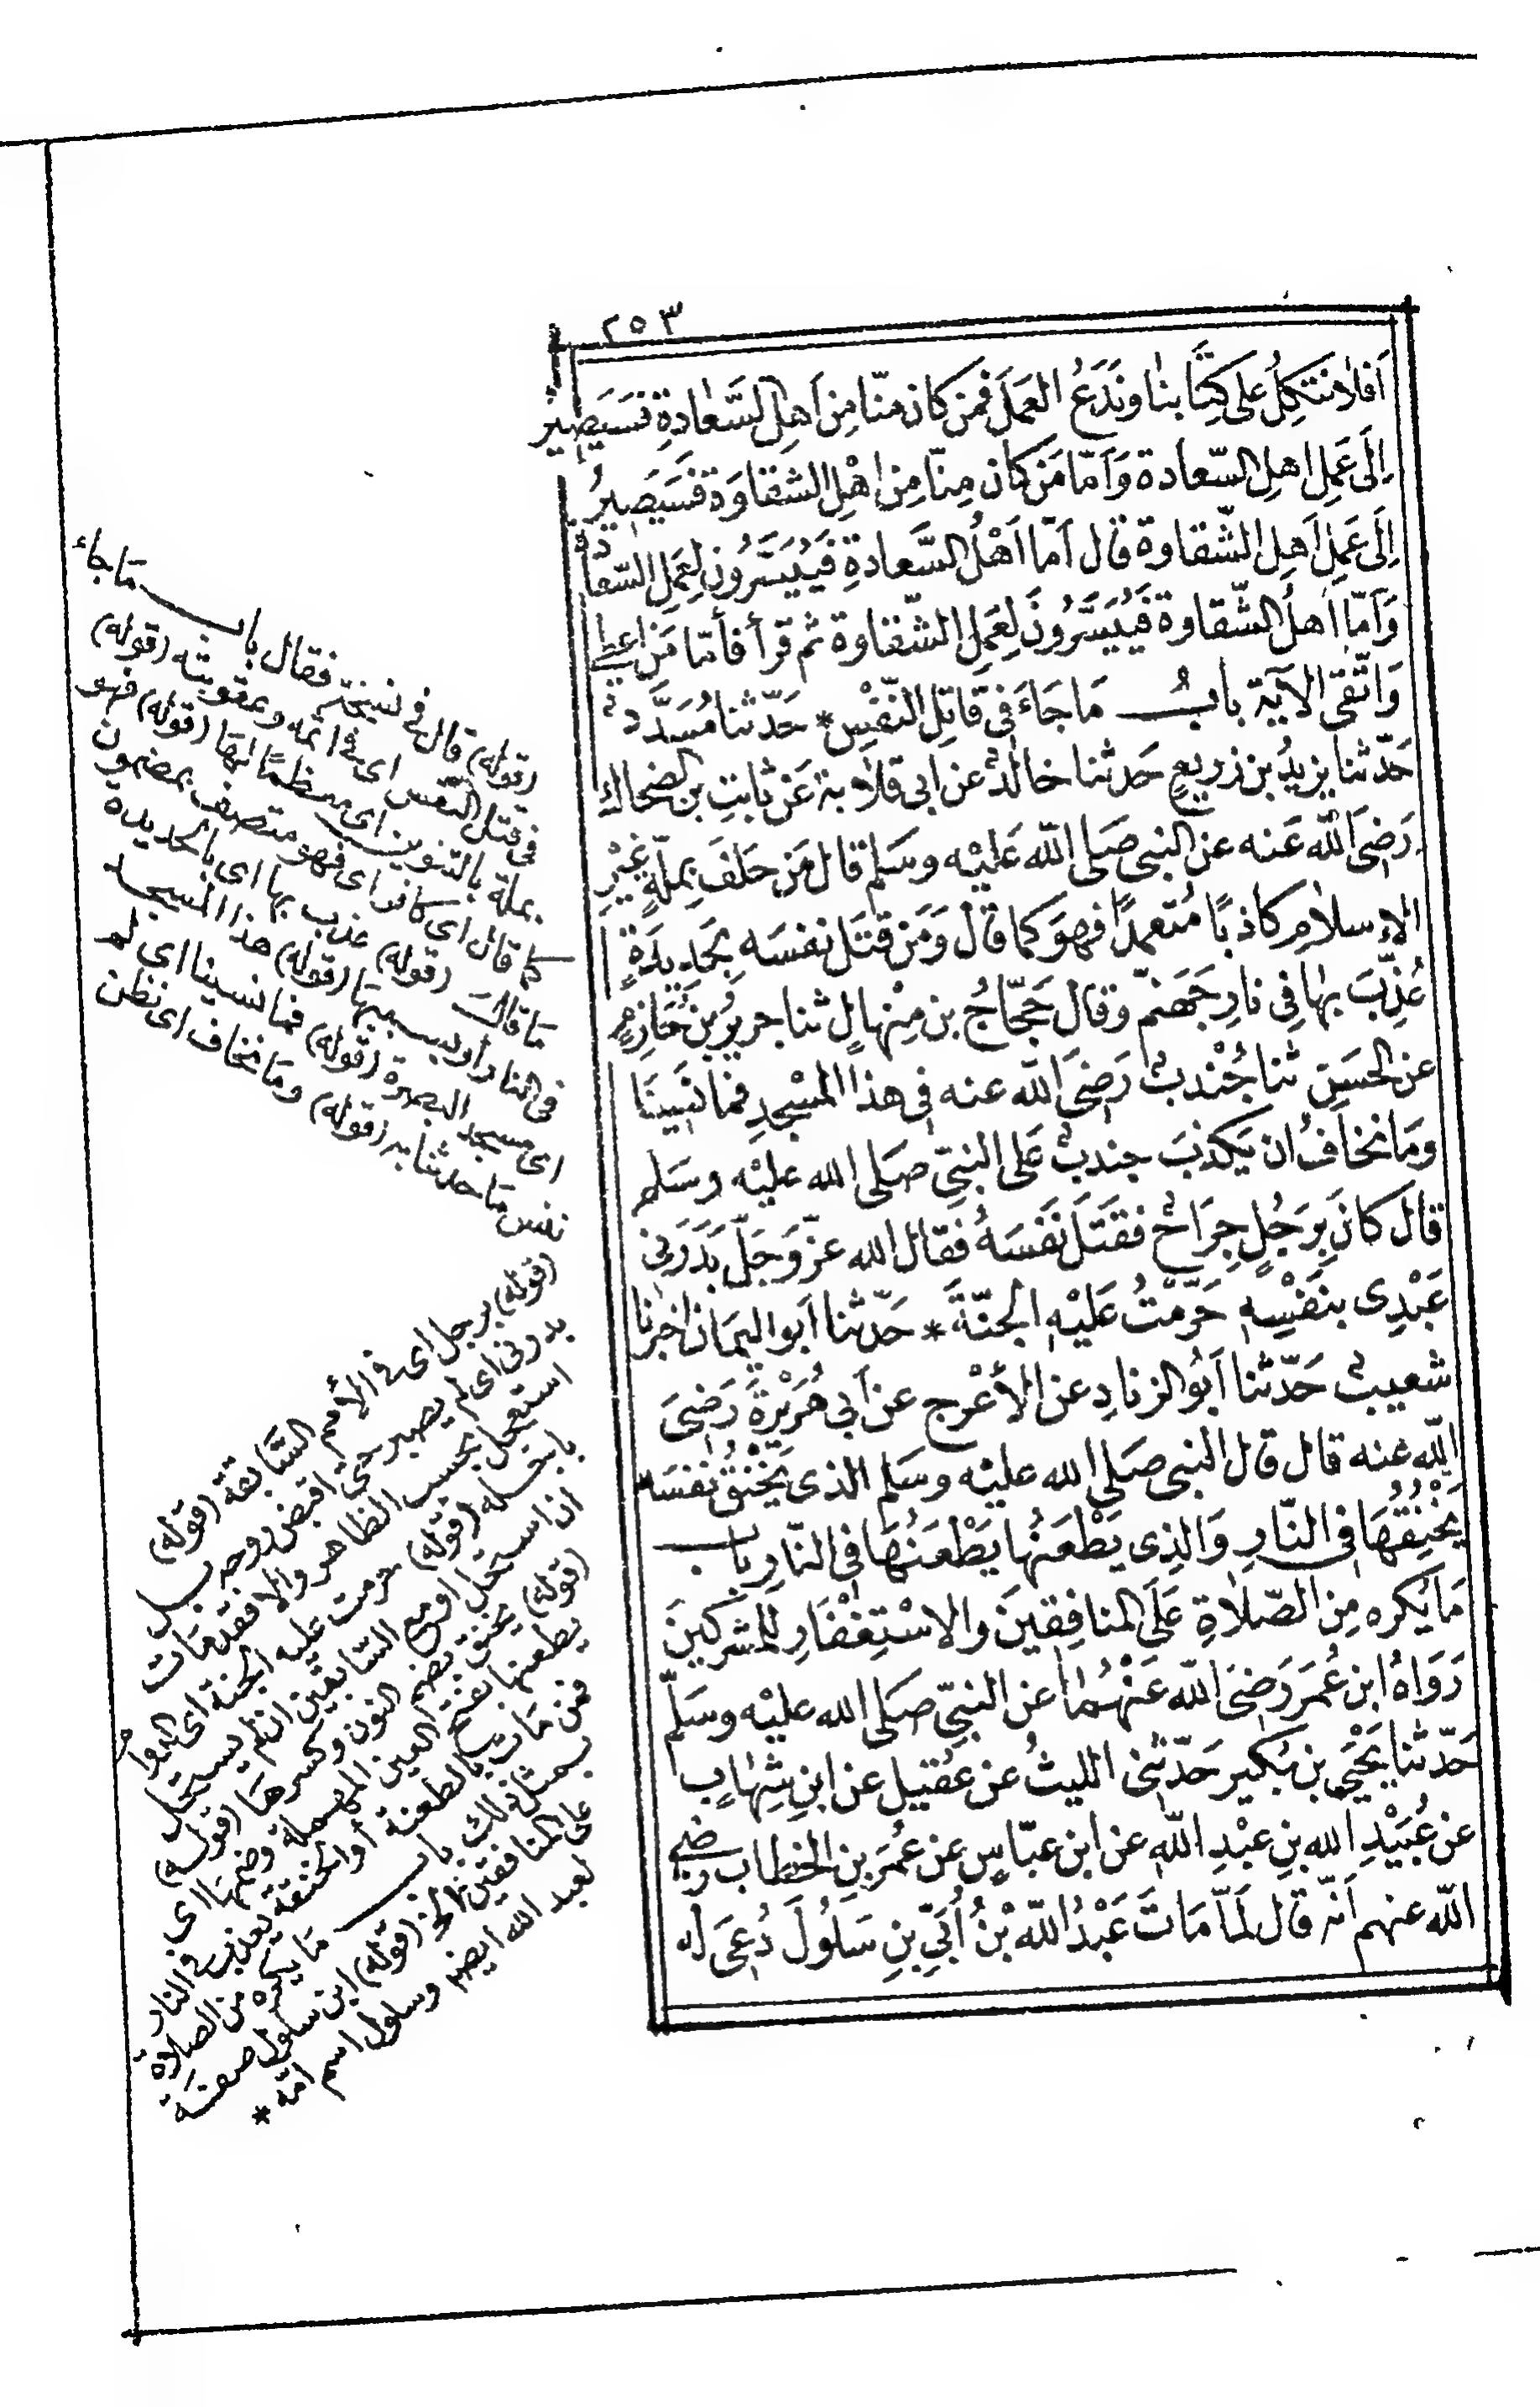 ٢٥٣
اَفَلَا نَتَّكِلُ عَلَى كِتَابِنَا وَنَدَعُ العَمَلَ فَمَن كان مِنّا مِن اَهلِ السَّعَادةِ فَسَيَصِيرُ
اِلَى عَمَلِ اهلِ السّعادة وَاَمّا مَن كان مِنّا مِن اهْلِ الشقاوَة فَسَيَصِيرُ
اِلَى عَمَلِ اَهلِ الشّقاوة قال اَمّا اَهْلُ السَّعادةِ فَيُيَسَّرُونَ لِعَمَلِ السّعادة
وَاَمّا اَهلُ الشّقاوة فَيُيَسَّرُونَ لِعَمَلِ الشقاوة ثم قرأ فأمّا مَن اعطى
وَاتَّقى الآيَة بابُ مَا جَاءَ فِى قَاتِلِ النّفْسِ * حَدّثنا مُسَدَّدٌ
حَدّثنا يزيدُ بن زريعٍ حَدثنا خالدٌ عن ابى قلابة عَن ثابتِ بن الضحاك
رَضِىَ اللّه عَنه عن النبى صَلى اللّه عَليْه وسَلم قال مَن حَلفَ بملّةٍ غيْرِ
الإسلام كاذبًا مُتعمدًا فهوَ كما قال وَمَن قتَل نفسَه بحَدِيدَةٍ
عُذِّبَ بهَا فِى نارِ جَهَنّم وقال حَجّاجُ بن مِنْهالٍ ثنا جريرُ بنُ حَازمٍ
عن الحسَنِ ثنا جُنْدبٌ رَضِىَ اللّه عنه فى هذا المسْجدِ فما نَسِينَا
ومَا نخَافُ ان يَكذبَ جندبٌ عَلى النبىِّ صَلى الله عليْه وسَلم
قال كانَ بِرَجُلٍ جِرَاحٌ فقَتَلَ نَفسَهُ فقال الله عزّ وَجَلّ بَدَرَنِى
عَبْدِى بنَفْسِهِ حَرَّمْتُ عَليْهِ الجنّةَ * حَدّثنا اَبو اليمَان اخبرنا
شعيبٌ حَدّثنا اَبُو الزنادِ عن الأعْرج عن اَبِى هُرَيْرةَ رَضِىَ
اللّه عنه قال قال النبى صَلى الله عليْه وسَلم الذى يَخْنُقُ نفسَه
يَخْنُقُهَا فِى النّارِ وَالذِى يَطْعَنُهَا يَطْعَنُهَا فِى النّارِ باب
مَا يُكره مِن الصّلاةِ عَلَى المنافِقينَ والاسْتِغفَارِ للمشركينَ
رَوَاهُ ابن عُمَرَ رَضِىَ اللّه عَنْهُمَا عن النبىّ صَلى الله عليْه وسَلّم
حَدّثنا يَحْيَى بن بُكير حَدّثنى الليثُ عن عُقيل عن ابنِ شِهَابٍ
عن عُبَيْدِ الله بنِ عبْدِ اللّهِ عن ابن عبّاسٍ عن عُمَرَ بنِ الخطاب رضى
اللّه عنهم اَنّه قال لمّا مَاتَ عَبْدُ اللّه بْنُ أُبَيّ بنِ سَلُولَ دُعِىَ له
(قوله) قال فى نسخة فقال باب مَا جاء
فى قتل النّفس اى فى اثمه وعقوبته (قوله)
بملة بالتنوين اى معظمًا لهَا (قوله) فهو
كما قال اى كافر اى فهو متصف بمضمون
مَا قال (قوله) عذب بها اى بالحديدة
فى النار أو بسببهَا (قوله) هذا المسجد
اى مسجد البصرة (قوله) فما نسينا اى لم
ننس مَا حدثنا به (قوله) ومَا نخاف اى نظن
(قوله) برجل اى فى الأمم السَّابقة (قوله)
بدرنى اى لم يصبر حتى اقبض روحه بل
استعجل بحسب الظاهر والا فقد مَات
بأجله (قوله) حرمت عليه الجنة اى
ان استحل او مع السّابقين ان لم يستحل
(قوله) يخنق بضم النون وكسرهَا (قوله)
يطعنها بفتح العين المهملة وضمهَا اى
فمن مَات بالطعنة أو الخنقة يعذب فى النار
بمثل ذلك باب مَا يكره من الصلاة
على المنافقين الخ (قوله) ابن سلول صفة
لعبد الله ايضًا وسلول اسم امّه *